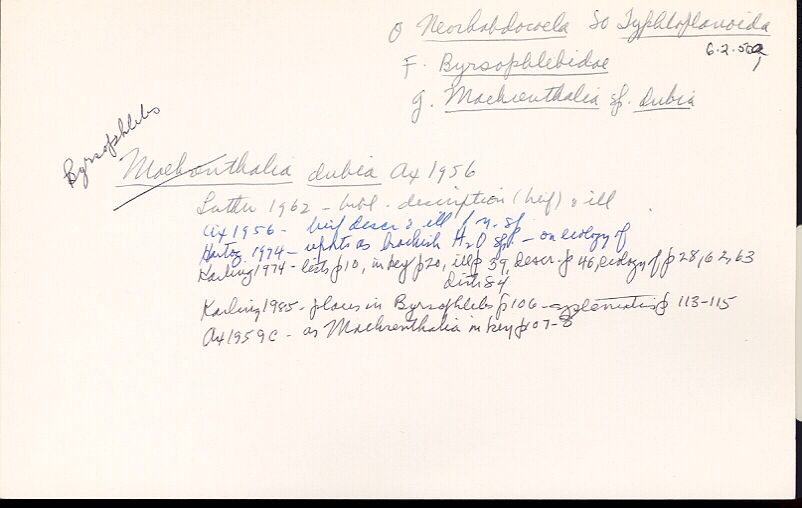 O Neorhabdocoela So Typhloplanoida
6.2.50a
F. Byrsophlebidae
g. Maehrenthalia sp. dubia
Byrsophlebs
Maehrenthalia dubia Ax 1956
Luther 1962 - bibl. description (brief) & ill
Ax 1956 - brief descr & ill / n. sp.
Hartog 1974 - reports as brackish H2O sp. - on ecology of
Karling 1974 - lists p10, in key p20, ill p 39, descr p 46, ecology of p 28, 62, 63
distr 84
Karling 1985 - places in Byrsophlebs p 106 - systematics p 113-115
Ax 1959c - as Maehrenthalia in key p 107-8